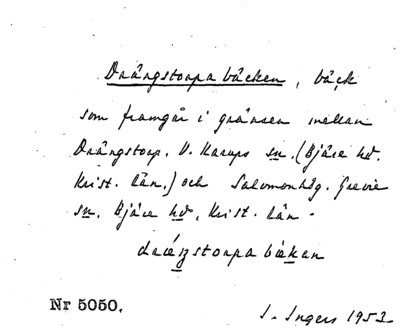 Drängstorpa bäcken, bäck
som framgår i gränsen mellan
Drängstorp. V. Karups sn. (Bjäre hd.
Krist. län.) och Salomonhög. Grevie
sn. Bjäre hd. Krist. län.
bækan
Nr 5050.
I. Ingers 1953